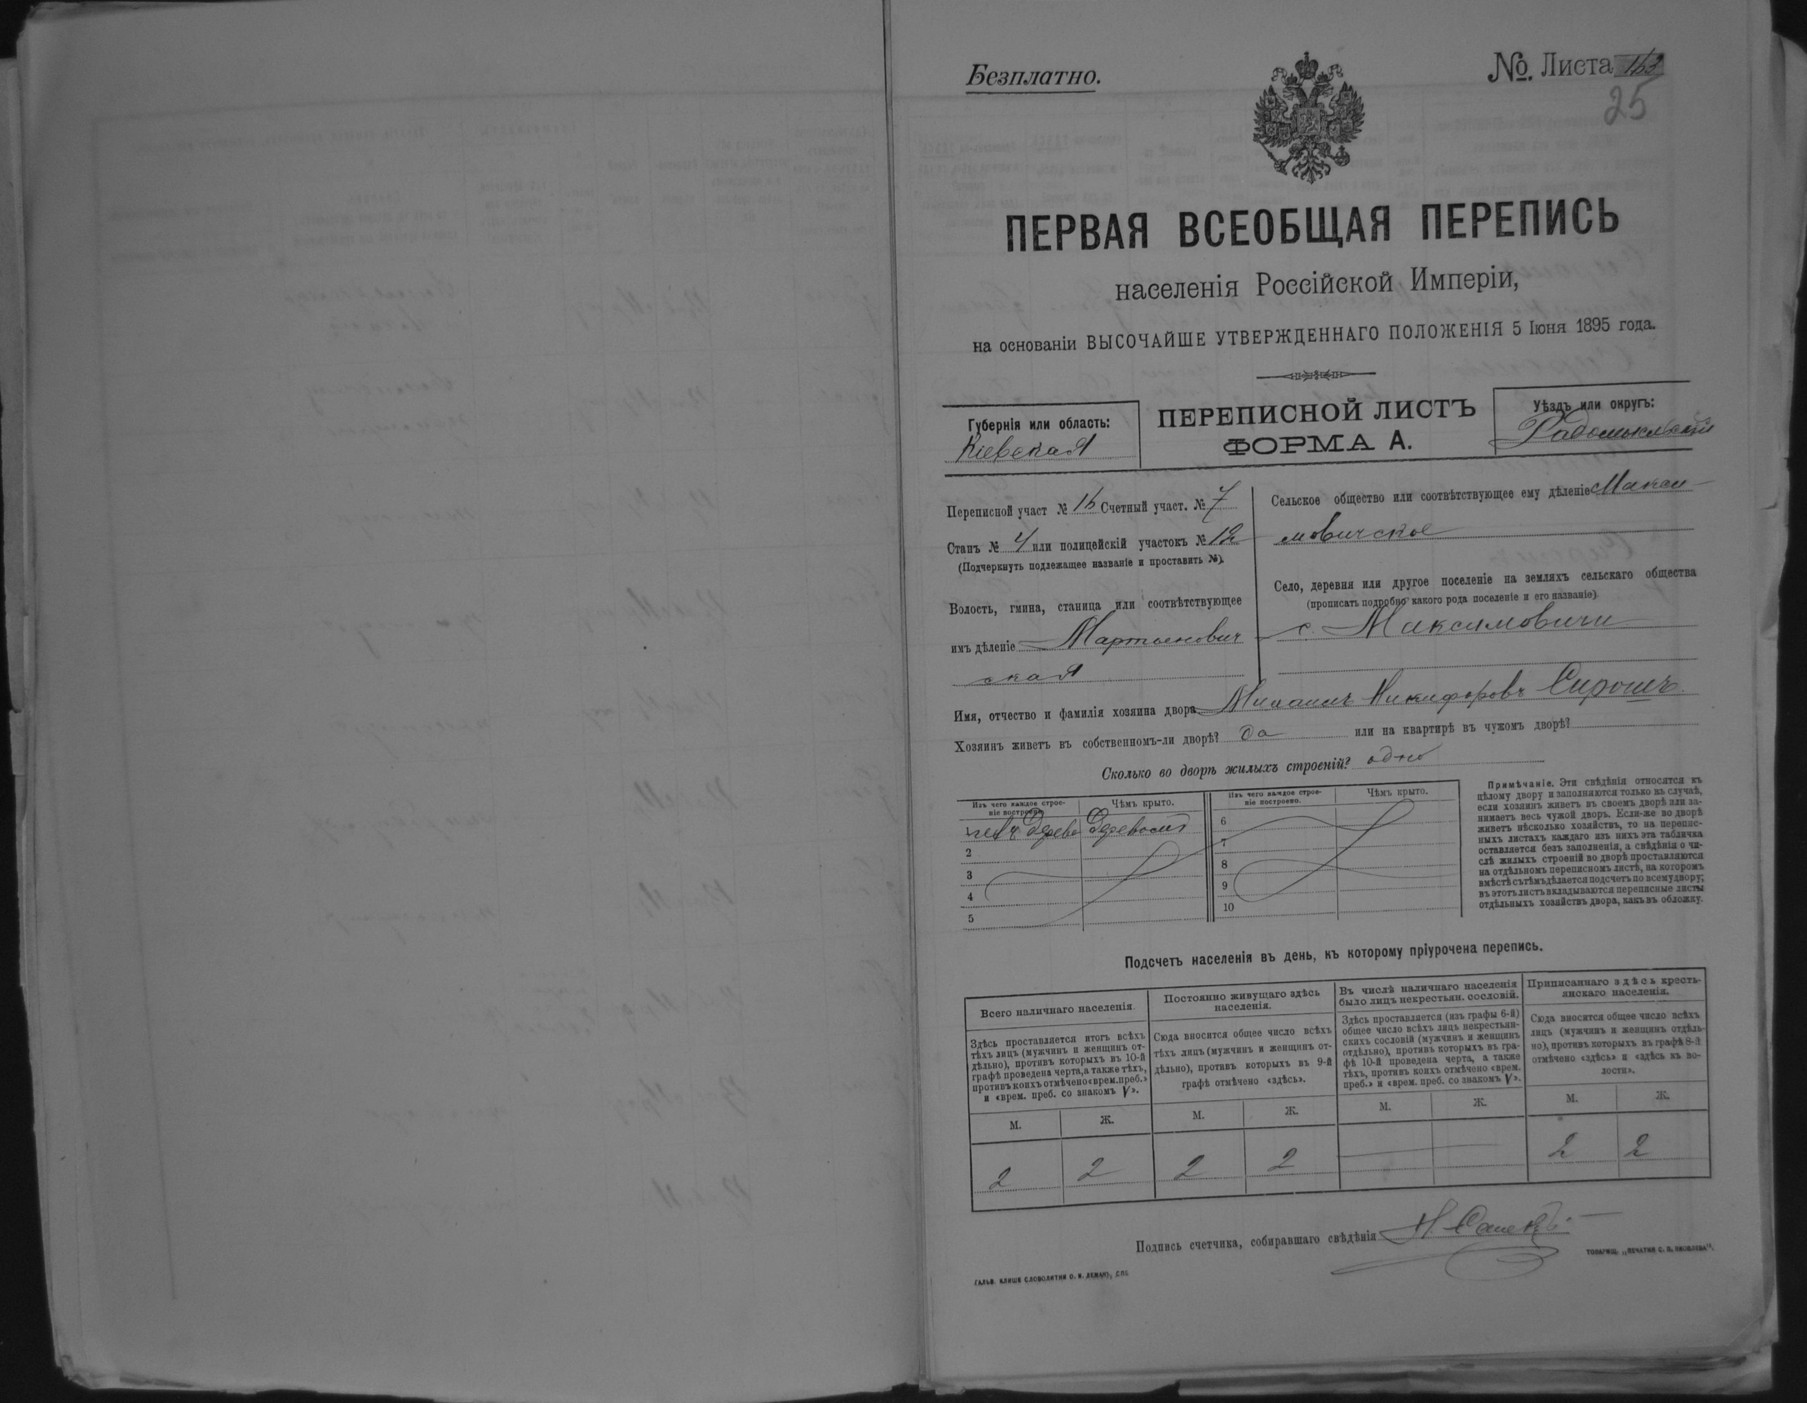 Безплатно.
№. Листа 163
25
ПЕРВАЯ ВСЕОБЩАЯ ПЕРЕПИСЬ
населенія Россійской Имперіи,
на основаніи ВЫСОЧАЙШЕ УТВЕРЖДЕННАГО ПОЛОЖЕНІЯ 5 Іюня 1895 года.
Губернія или область:
Кіевская
ПЕРЕПИСНОЙ ЛИСТЪ
ФОРМА А.
Уѣздъ или округъ:
Радомысльскій
Переписной участ № 16 Счетный участ. № 7
Станъ № 4 или полицейскій участокъ № 12
(Подчеркнуть подлежащее названіе и проставить №).
Волость, гмина, станица или соотвѣтствующее
имъ дѣленіе Мартынович
ская
Сельское общество или соотвѣтствующее ему дѣленіе Макси-
мовичское
Село, деревня или другое поселеніе на земляхъ сельскаго общества
(прописать подробно какого рода поселеніе и его названіе)
с. Максимовичи
Имя, отчество и фамилія хозяина двора Михаилъ Никифоровъ Сирошъ
Хозяинъ живетъ въ собственномъ-ли дворѣ? да или на квартирѣ въ чужомъ дворѣ?
Сколько во дворѣ жилыхъ строеній? одно
Изъ чего каждое строе-
ніе построено.
Чѣмъ крыто.
Изъ чего каждое строе-
ніе построено.
Чѣмъ крыто.
1 изъ дерева Деревомъ
2
3
4
5
6
7
8
9
10
Примѣчаніе. Эти свѣдѣнія относятся къ
цѣлому двору и заполняются только въ случаѣ,
если хозяинъ живетъ въ своемъ дворѣ или за-
нимаетъ весь чужой дворъ. Если-же во дворѣ
живетъ нѣсколько хозяйствъ, то на перепис-
ныхъ листахъ каждаго изъ нихъ эта табличка
оставляется безъ заполненія, а свѣдѣнія о чи-
слѣ жилыхъ строеній во дворѣ проставляются
на отдѣльномъ переписномъ листѣ, на которомъ
вмѣстѣ съ тѣмъ дѣлается подсчетъ по всему двору;
въ этотъ листъ вкладываются переписные листы
отдѣльныхъ хозяйствъ двора, какъ въ обложку.
Подсчетъ населенія въ день, къ которому пріурочена перепись.
Всего наличнаго населенія.
Здѣсь проставляется итогъ всѣхъ
тѣхъ лицъ (мужчинъ и женщинъ от-
дѣльно), противъ которыхъ въ 10-й
графѣ проведена черта, а также тѣхъ,
противъ коихъ отмѣчено «врем. преб.»
и «врем. преб. со знакомъ V».
Постоянно живущаго здѣсь
населенія.
Сюда вносится общее число всѣхъ
тѣхъ лицъ (мужчинъ и женщинъ от-
дѣльно), противъ которыхъ въ 9-й
графѣ отмѣчено «здѣсь».
Въ числѣ наличнаго населенія
было лицъ некрестьян. сословій.
Здѣсь проставляется (изъ графы 6-й)
общее число всѣхъ лицъ некрестьян-
скихъ сословій (мужчинъ и женщинъ
отдѣльно), противъ которыхъ въ гра-
фѣ 10-й проведена черта, а также
тѣхъ, противъ коихъ отмѣчено «врем.
преб.» и «врем. преб. со знакомъ V».
Приписаннаго здѣсь кресть-
янскаго населенія.
Сюда вносится общее число всѣхъ
лицъ (мужчинъ и женщинъ отдѣль-
но), противъ которыхъ въ графѣ 8-й
отмѣчено «здѣсь» и «здѣсь къ во-
лости».
М. Ж. М. Ж. М. Ж. М. Ж.
2 2 2 2 — — 2 2
Подпись счетчика, собиравшаго свѣдѣнія
ГАЛЬВ. КЛИШЕ СЛОВОЛИТНИ О. И. ЛЕМАНЪ, СПБ.
ТОВАРИЩ. „ПЕЧАТНЯ С. П. ЯКОВЛЕВА".